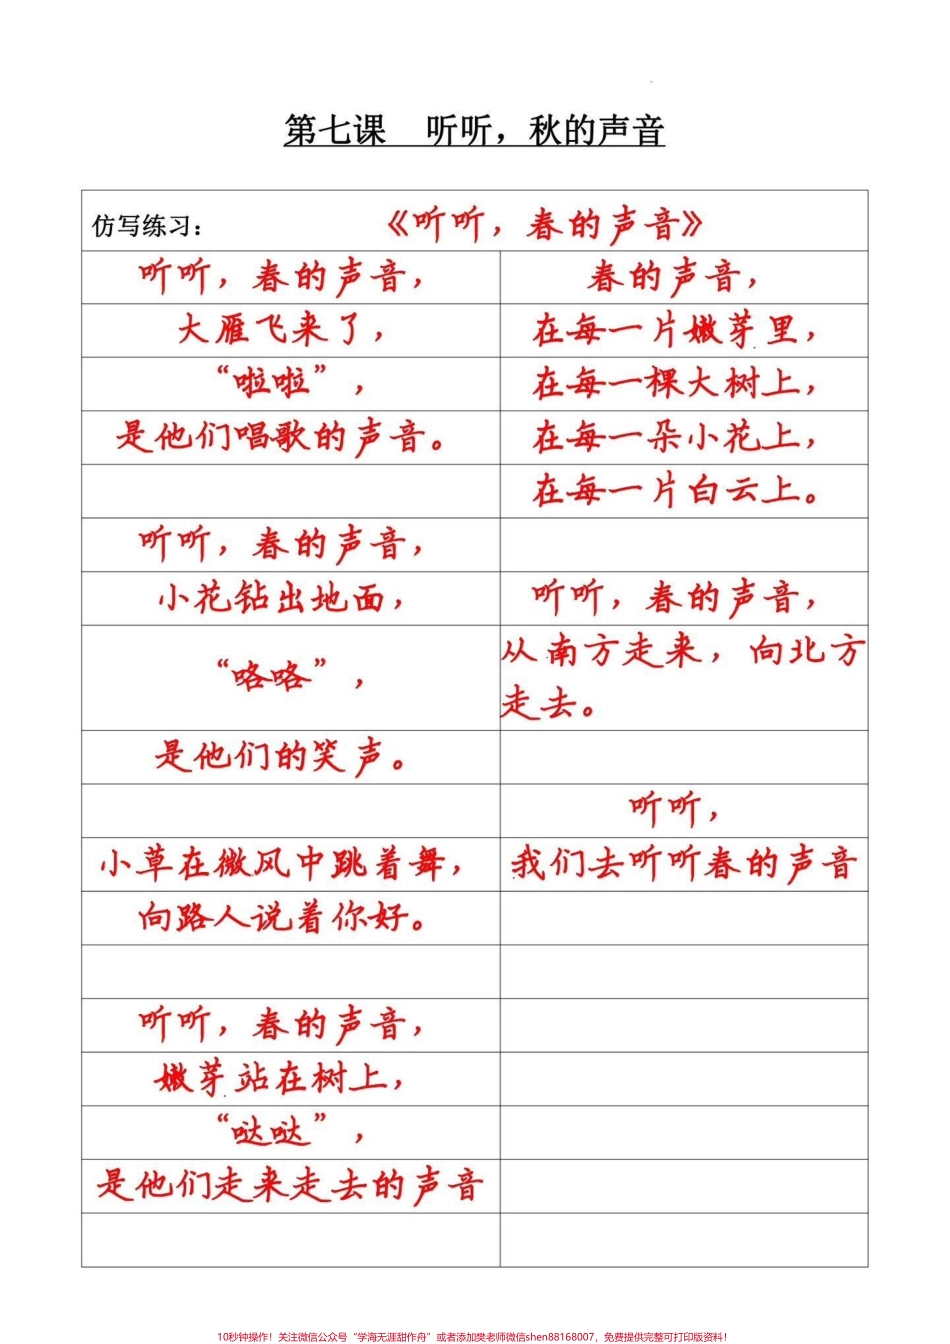 第七课 听听，秋的声音
仿写练习： 《听听，春的声音》
听听，春的声音，
大雁飞来了，
“啦啦”，
是他们唱歌的声音。
听听，春的声音，
小花钻出地面，
“咯咯”，
是他们的笑声。
小草在微风中跳着舞，
向路人说着你好。
听听，春的声音，
嫩芽站在树上，
“哒哒”，
是他们走来走去的声音
春的声音，
在每一片嫩芽里，
在每一棵大树上，
在每一朵小花上，
在每一片白云上。
听听，春的声音，
从南方走来，向北方
走去。
听听，
我们去听听春的声音
10秒钟操作！关注微信公众号“学海无涯甜作舟”或者添加樊老师微信shen88168007，免费提供完整可打印版资料！